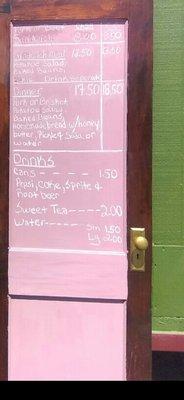 Pork or Beef
Sandwich 8.00 8.00
Meal 12.50 13.50
Potato Salad,
Baked Beans,
Drink Separate
Dinner 17.50 18.50
Pork or Brisket
Potato Salad,
Baked Beans,
homemade bread w/honey
butter, Pickle & Salsa. or
water
Drinks
Cans - - - - 1.50
Pepsi, Coke, Sprite &
Root beer
Sweet Tea - - - - - 2.00
Water - - - - - Sm 1.50
Lg 2.00